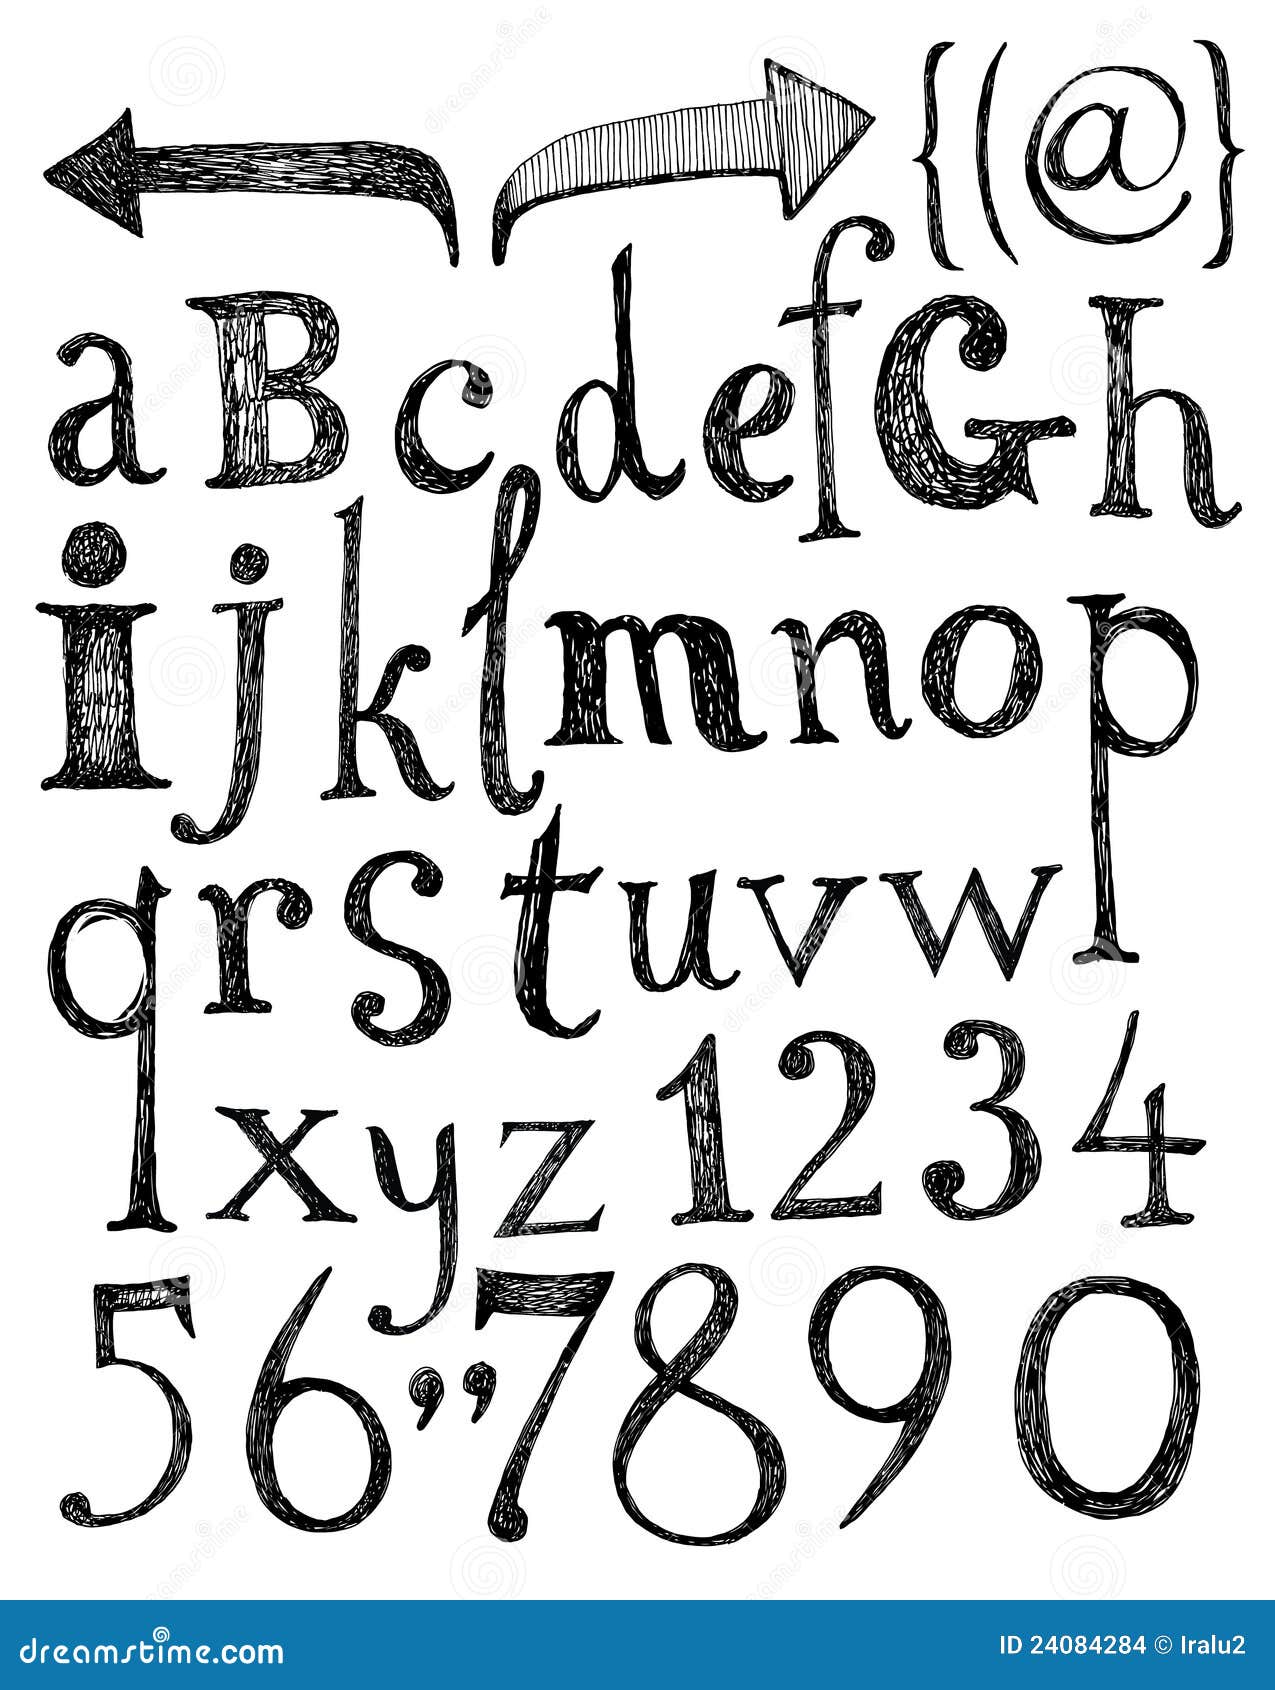 {(@}
aBcdefGh
ijklmnop
qrstuvw
xyz1234
56”7890
dreamstime.com
ID 24084284 © Iralu2